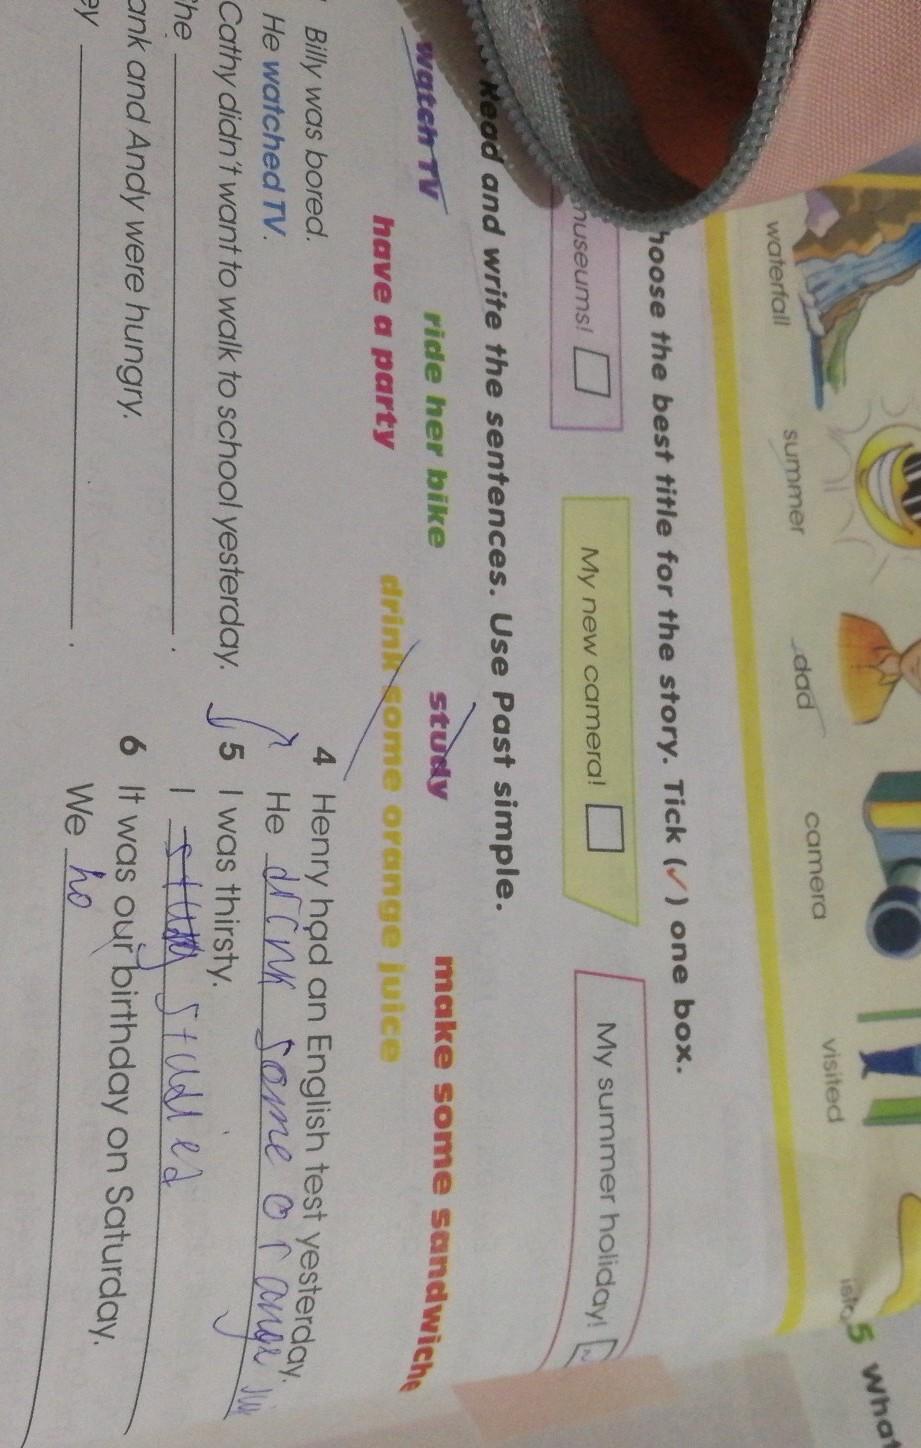 waterfall summer dad camera visited
5 What
hoose the best title for the story. Tick (✓) one box.
museums! My new camera! My summer holiday!
Read and write the sentences. Use Past simple.
watch TV ride her bike study make some sandwiche
have a party drink some orange juice
Billy was bored.
He watched TV.
Cathy didn't want to walk to school yesterday.
he .
ank and Andy were hungry.
ey .
4 Henry had an English test yesterday.
He drink some orange
5 I was thirsty.
I studied
6 It was our birthday on Saturday.
We ha